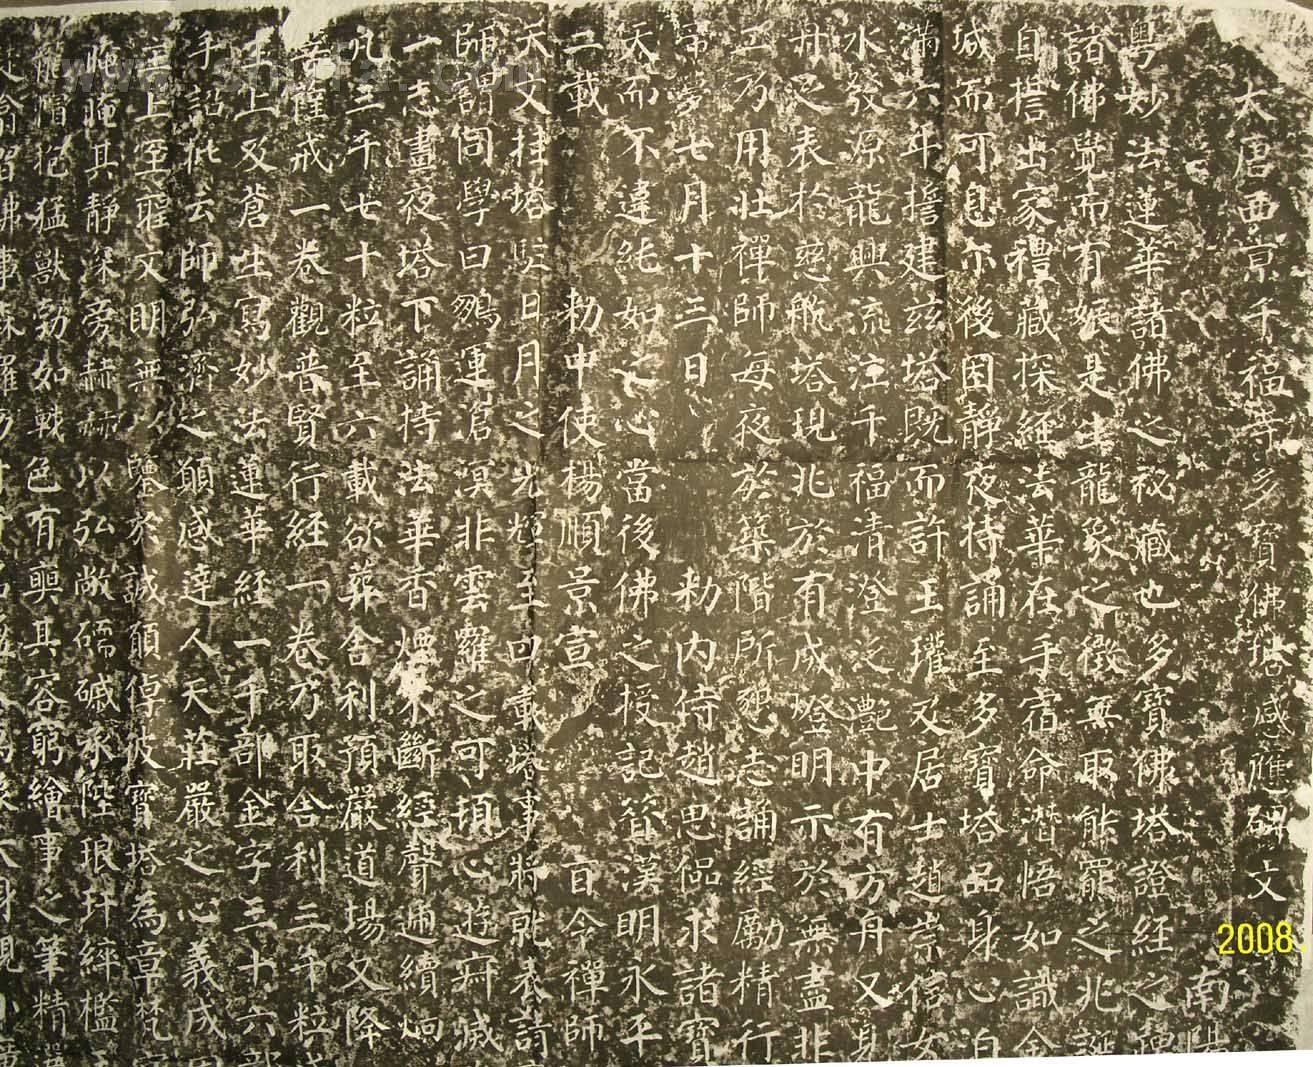 大唐西京千福寺多寶佛塔感應碑文
南陽
粵妙法蓮華諸佛之祕藏也多寶佛塔證經之踴
諸佛覺而有娠是生龍象之徵無取熊羆之兆誕
自誓出家禮藏探經法華在手宿命潛悟如識金
域而可息尔後因靜夜持誦至多寶塔品身心泊
滿六年誓建茲塔既而許王瓘及居士趙崇信女
水發源龍興流注千福清澄泛灩中有方舟又見
舟足表於慈航塔現兆於有成燈明示於無盡非
工乃用壯禪師每夜於築階所懇志誦經勵精行
帝夢七月十三日 敕內侍趙思侃求諸寶
天而不違純如之心當後佛之授記昔漢明永平
二載 敕中使楊順景宣 旨令禪師
天文挂塔駐日月之光輝至四載塔事將就表請
師謂同學曰鵬運滄溟非雲羅之可頓心遊寂滅
一志晝夜塔下誦持法華香煙不斷經聲遞續炯
凡三千七十粒至六載欲葬舍利預嚴道場又降
菩薩戒一卷觀普賢行經一卷乃取舍利三千粒
主上及蒼生寫妙法蓮華經一千部金字三十六部
手詔批云師弘濟之願感達人天莊嚴之心義成
上至聖文明無以鑒於誠願倬彼寶塔為章梵
晻曖其靜深旁赫赫以弘敞礝碱承陛琅玕綷檻
抱猛獸勃如戰色有奭其容窮繪事之筆精選
翕習佛事森羅
2008